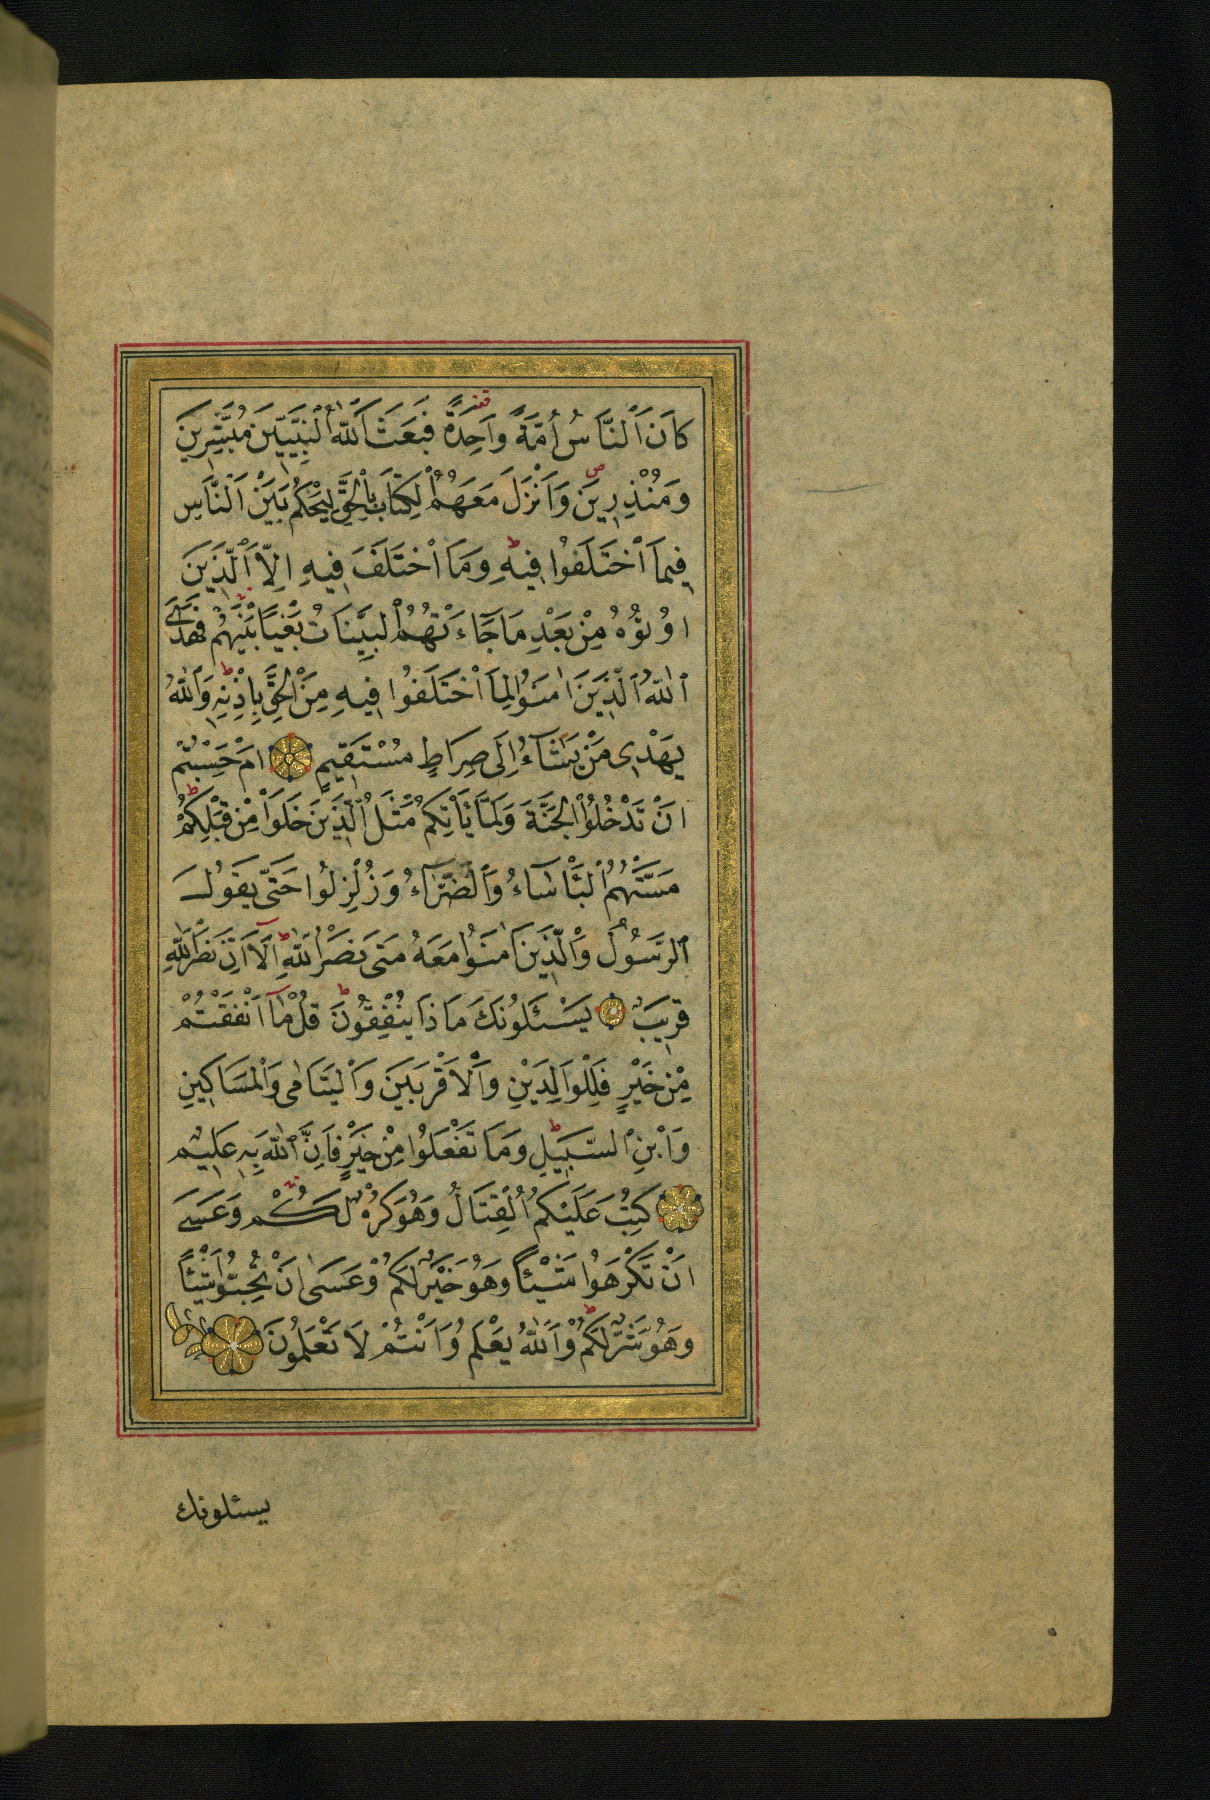 كَانَ ٱلنَّاسُ أُمَّةً وَاحِدَةً فَبَعَثَ ٱللّٰهُ ٱلنَّبِيّٖنَ مُبَشِّرِينَ
وَمُنْذِرِينَ وَاَنْزَلَ مَعَهُمُ ٱلْكِتَابَ بِالْحَقِّ لِيَحْكُمَ بَيْنَ ٱلنَّاسِ
فِيمَا ٱخْتَلَفُوا فِيهِ وَمَا ٱخْتَلَفَ فِيهِ اِلَّا ٱلَّذِينَ
اُوتُوهُ مِنْ بَعْدِ مَا جَاءَتْهُمُ ٱلْبَيِّنَاتُ بَغْيًا بَيْنَهُمْ فَهَدَى
ٱللّٰهُ ٱلَّذِينَ اٰمَنُوا لِمَا ٱخْتَلَفُوا فِيهِ مِنَ ٱلْحَقِّ بِاِذْنِهٖ وَٱللّٰهُ
يَهْدِى مَنْ يَشَآءُ اِلَى صِرَاطٍ مُسْتَقِيمٍ اَمْ حَسِبْتُمْ
اَنْ تَدْخُلُوا ٱلْجَنَّةَ وَلَمَّا يَأْتِكُمْ مَثَلُ ٱلَّذِينَ خَلَوْا مِنْ قَبْلِكُمْ
مَسَّتْهُمُ ٱلْبَأْسَآءُ وَٱلضَّرَّآءُ وَزُلْزِلُوا حَتّٰى يَقُولَ
ٱلرَّسُولُ وَٱلَّذِينَ اٰمَنُوا مَعَهُ مَتٰى نَصْرُ ٱللّٰهِ اَلَآ اِنَّ نَصْرَ ٱللّٰهِ
قَرِيبٌ يَسْـَٔلُونَكَ مَاذَا يُنْفِقُونَ قُلْ مَآ اَنْفَقْتُمْ
مِنْ خَيْرٍ فَلِلْوَالِدَيْنِ وَٱلْاَقْرَبِينَ وَٱلْيَتَامٰى وَٱلْمَسَاكِينِ
وَٱبْنِ ٱلسَّبِيلِ وَمَا تَفْعَلُوا مِنْ خَيْرٍ فَاِنَّ ٱللّٰهَ بِهٖ عَلِيمٌ
كُتِبَ عَلَيْكُمُ ٱلْقِتَالُ وَهُوَ كُرْهٌ لَكُمْ وَعَسَى
اَنْ تَكْرَهُوا شَيْـًٔا وَهُوَ خَيْرٌ لَكُمْ وَعَسَى اَنْ تُحِبُّوا شَيْـًٔا
وَهُوَ شَرٌّ لَكُمْ وَٱللّٰهُ يَعْلَمُ وَاَنْتُمْ لَا تَعْلَمُونَ
يسئلونك